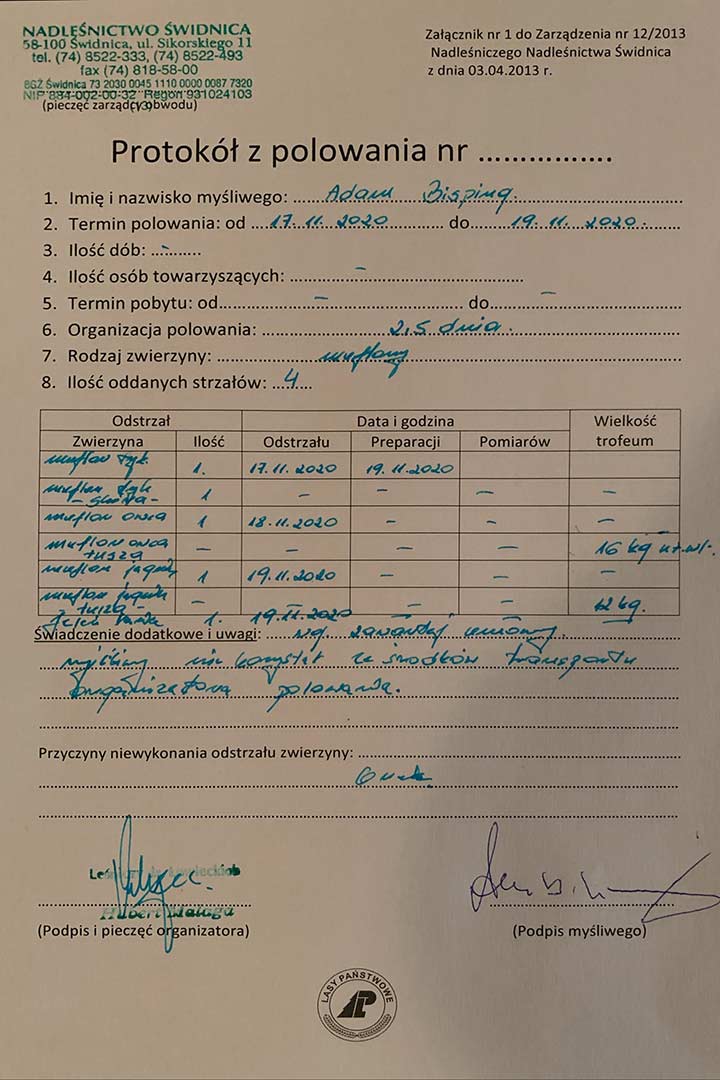 NADLEŚNICTWO ŚWIDNICA
58-100 Świdnica, ul. Sikorskiego 11
tel. (74) 8522-333, (74) 8522-493
fax (74) 818-58-00
BGŻ Świdnica 73 2030 0045 1110 0000 0087 7320
NIP 884-002-00-32 Regon 931024103
(pieczęć zarządcy obwodu)
(3)
Załącznik nr 1 do Zarządzenia nr 12/2013
Nadleśniczego Nadleśnictwa Świdnica
z dnia 03.04.2013 r.
Protokół z polowania nr ................
1. Imię i nazwisko myśliwego: Adam Bisping.
2. Termin polowania: od 17.11.2020 do 19.11.2020.
3. Ilość dób: -
4. Ilość osób towarzyszących: -
5. Termin pobytu: od - do -
6. Organizacja polowania: 2,5 dnia.
7. Rodzaj zwierzyny: muflony
8. Ilość oddanych strzałów: 4
Odstrzał Data i godzina Wielkość trofeum
Zwierzyna Ilość Odstrzału Preparacji Pomiarów
muflon tryk. 1. 17.11.2020 19.11.2020
muflon tryk 1 - - - -
muflon owca 1 18.11.2020 - - -
muflon owca tusza - - - - 16 kg
muflon jagnię 1 19.11.2020 - - -
muflon jagnię tusza - - - - - 12 kg.
1. 19.11.2020
Świadczenie dodatkowe i uwagi: wg. zawartej umowy.
myśliwy nie korzystał ze środków transportu
organizatora polowania.
Przyczyny niewykonania odstrzału zwierzyny:
Hubert Małaga
(Podpis i pieczęć organizatora)
(Podpis myśliwego)
LASY PAŃSTWOWE